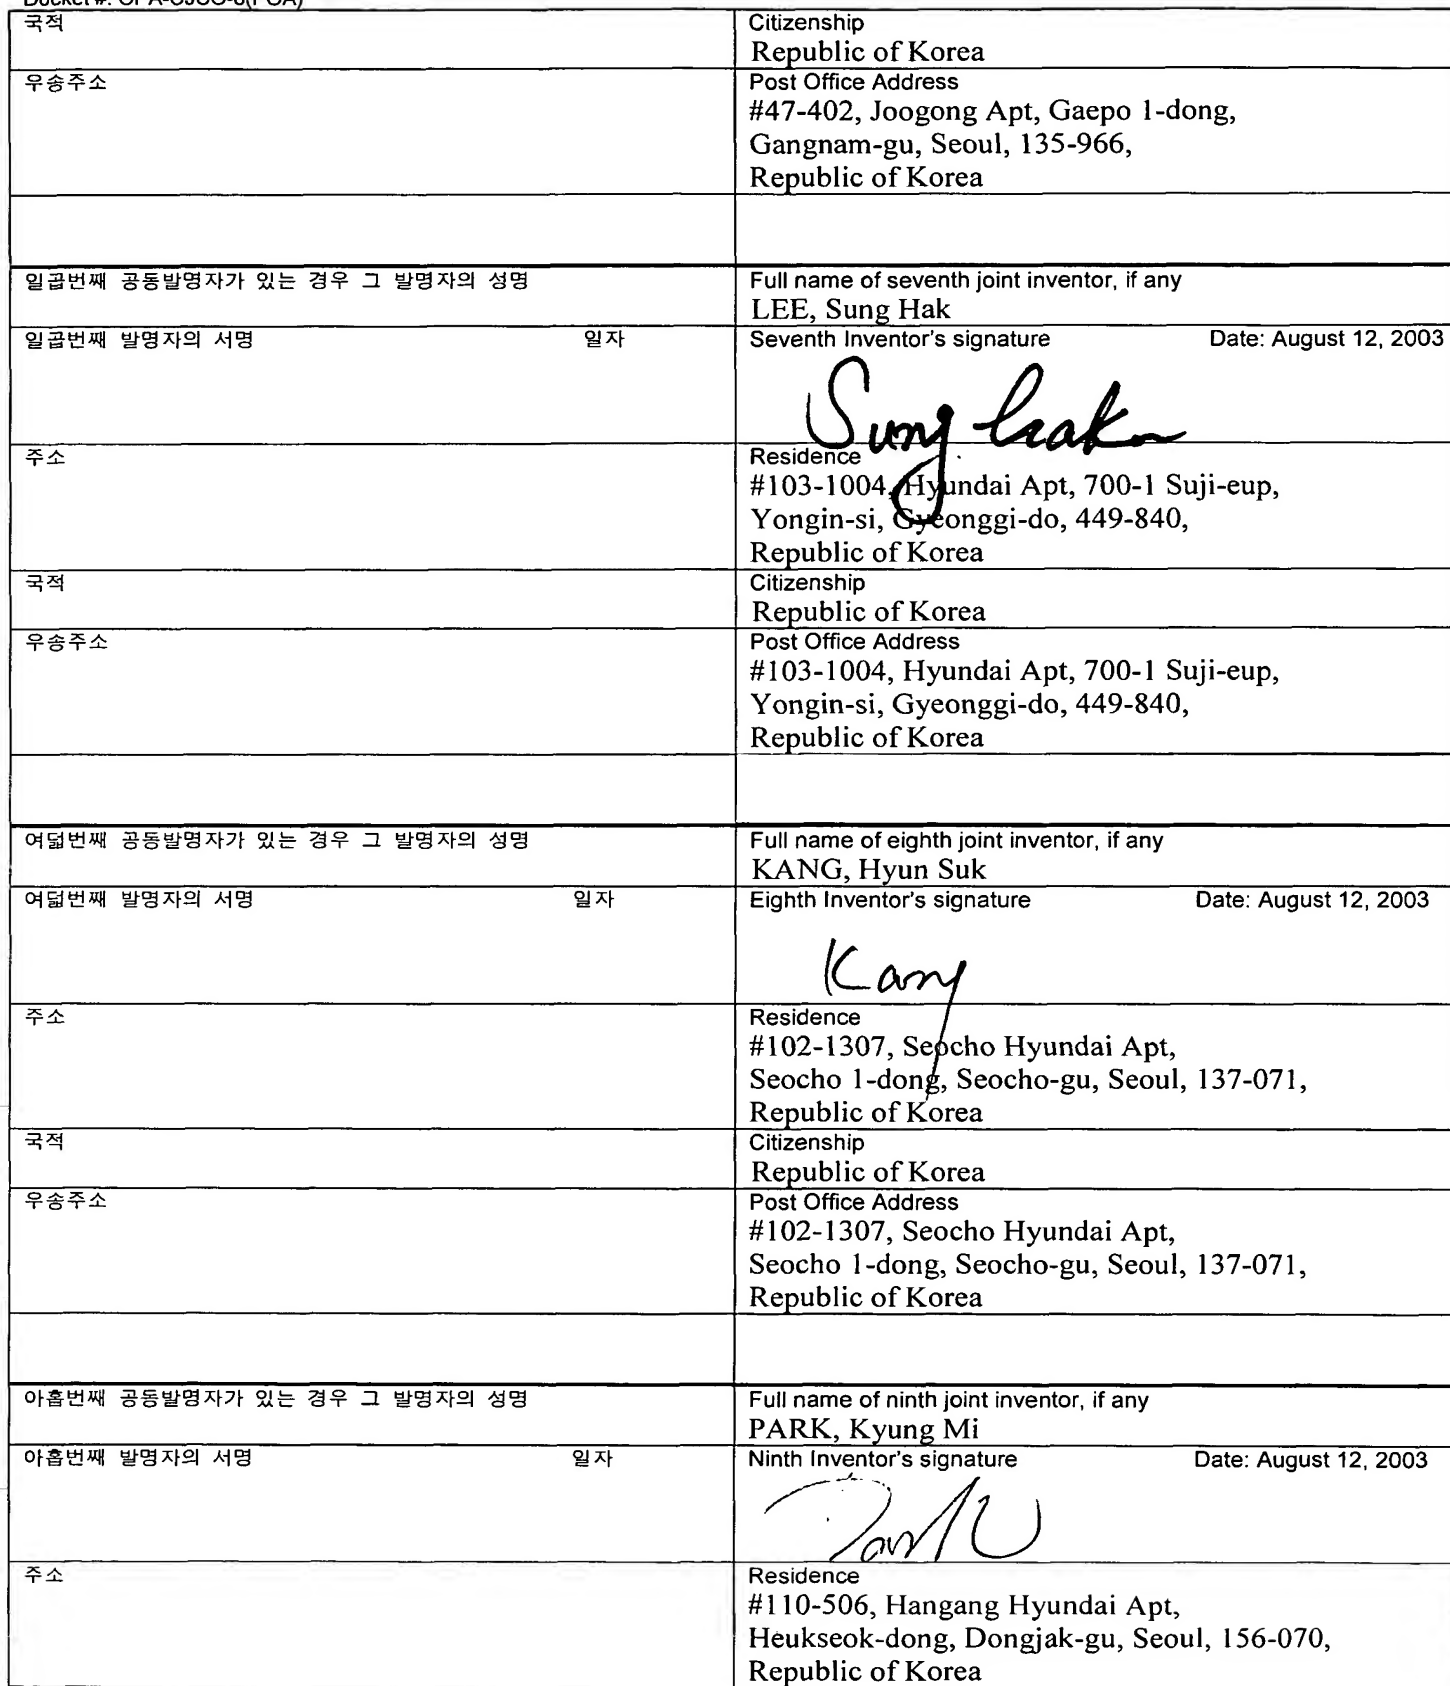 Docket #:
국적
Citizenship
Republic of Korea
우송주소
Post Office Address
#47-402, Joogong Apt, Gaepo 1-dong,
Gangnam-gu, Seoul, 135-966,
Republic of Korea
일곱번째 공동발명자가 있는 경우 그 발명자의 성명
Full name of seventh joint inventor, if any
LEE, Sung Hak
일곱번째 발명자의 서명 일자
Seventh Inventor's signature Date: August 12, 2003
Sung hak
주소
Residence
#103-1004, Hyundai Apt, 700-1 Suji-eup,
Yongin-si, Gyeonggi-do, 449-840,
Republic of Korea
국적
Citizenship
Republic of Korea
우송주소
Post Office Address
#103-1004, Hyundai Apt, 700-1 Suji-eup,
Yongin-si, Gyeonggi-do, 449-840,
Republic of Korea
여덟번째 공동발명자가 있는 경우 그 발명자의 성명
Full name of eighth joint inventor, if any
KANG, Hyun Suk
여덟번째 발명자의 서명 일자
Eighth Inventor's signature Date: August 12, 2003
Kang
주소
Residence
#102-1307, Seocho Hyundai Apt,
Seocho 1-dong, Seocho-gu, Seoul, 137-071,
Republic of Korea
국적
Citizenship
Republic of Korea
우송주소
Post Office Address
#102-1307, Seocho Hyundai Apt,
Seocho 1-dong, Seocho-gu, Seoul, 137-071,
Republic of Korea
아홉번째 공동발명자가 있는 경우 그 발명자의 성명
Full name of ninth joint inventor, if any
PARK, Kyung Mi
아홉번째 발명자의 서명 일자
Ninth Inventor's signature Date: August 12, 2003
주소
Residence
#110-506, Hangang Hyundai Apt,
Heukseok-dong, Dongjak-gu, Seoul, 156-070,
Republic of Korea